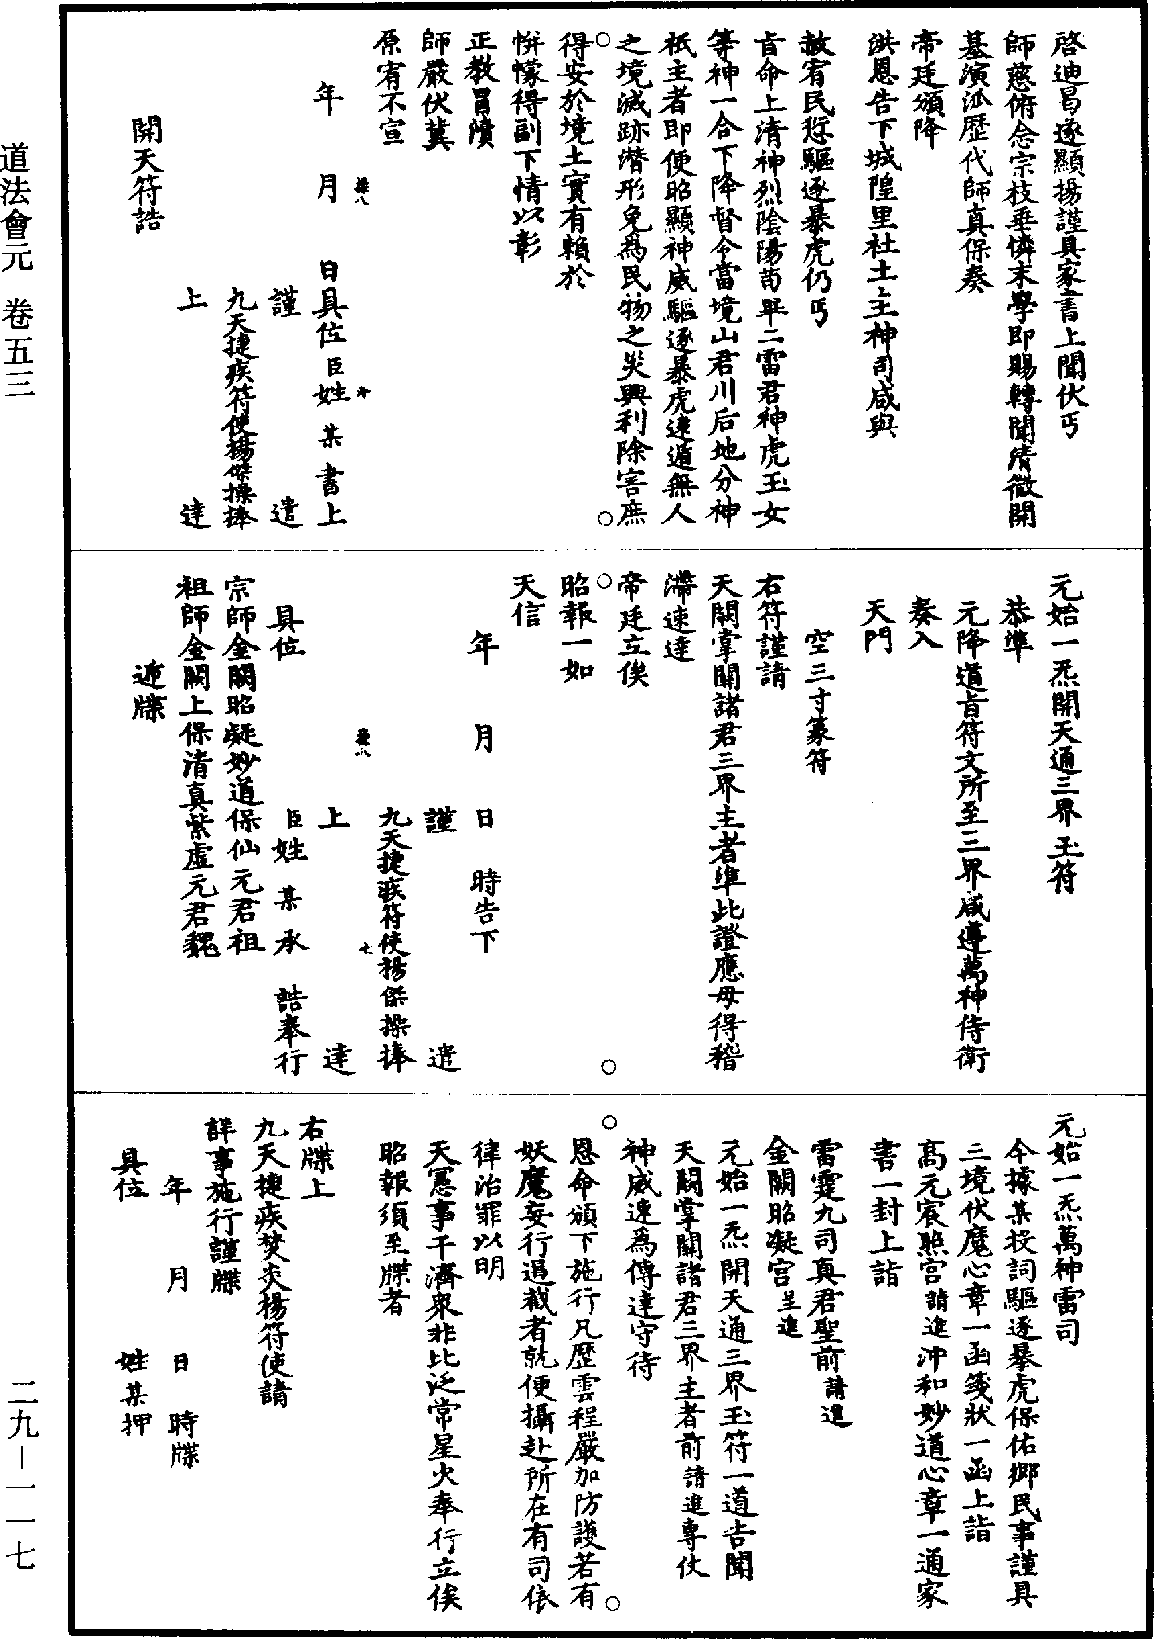 啓迪昌遂顯揚謹具家書上聞伏丐
師慈俯念宗枝垂憐末學即賜轉聞清微開
基演派歷代師真保奏
帝廷頒降
洪恩告下城隍里社土主神司咸與
赦宥民愆驅逐暴虎仍丐
旨命上清神烈陰陽苟畢二雷君神虎玉女
等神一合下降督令當境山君川后地分神
祇主者即便昭顯神威驅逐暴虎速遁無人
之境滅跡潛形免為民物之災興利除害庶
得安於境土實有賴於
恲懞得副下情以彰
正教冒瀆
師嚴伏冀
原宥不宣
年 月 日具位臣姓某書上
謹 遣
九天捷疾符使楊傑操捧
上 達
開天符誥
元始一炁開天通三界玉符
恭準
元降道旨符文所至三界咸遵萬神侍衛
奏入
天門
空三寸篆符
右符謹請
天關掌關諸君三界主者準此證應毋得稽
滯速達
帝廷立俟
昭報一如
天信
年 月 日 時告下
謹 遣
九天捷疾符使楊傑操捧
上 達
具位 臣姓某承 誥奉行
宗師金闕昭凝妙道保仙元君祖
祖師金闕上保清真紫虛元君魏
遞牒
元始一炁萬神雷司
今據某投詞驅逐暴虎保佑鄉民事謹具
三境伏魔心章一函箋狀一函上詣
高元宸照宮請進沖和妙道心章一通家
書一封上詣
雷霆九司真君聖前請進
金闕昭凝宮呈進
元始一炁開天通三界玉符一道告聞
天關掌關諸君三界主者前請進專仗
神威速為傳達守待
恩命頒下施行凡歷雲程嚴加防護若有
妖魔妄行遏截者就便攝赴所在有司依
律治罪以明
天憲事干濟眾非比泛常星火奉行立俟
昭報須至牒者
右牒上
九天捷疾焚炎楊符使請
詳事施行謹牒
年 月 日 時牒
具位 姓某押
道法會元 卷五三
二九－一一七